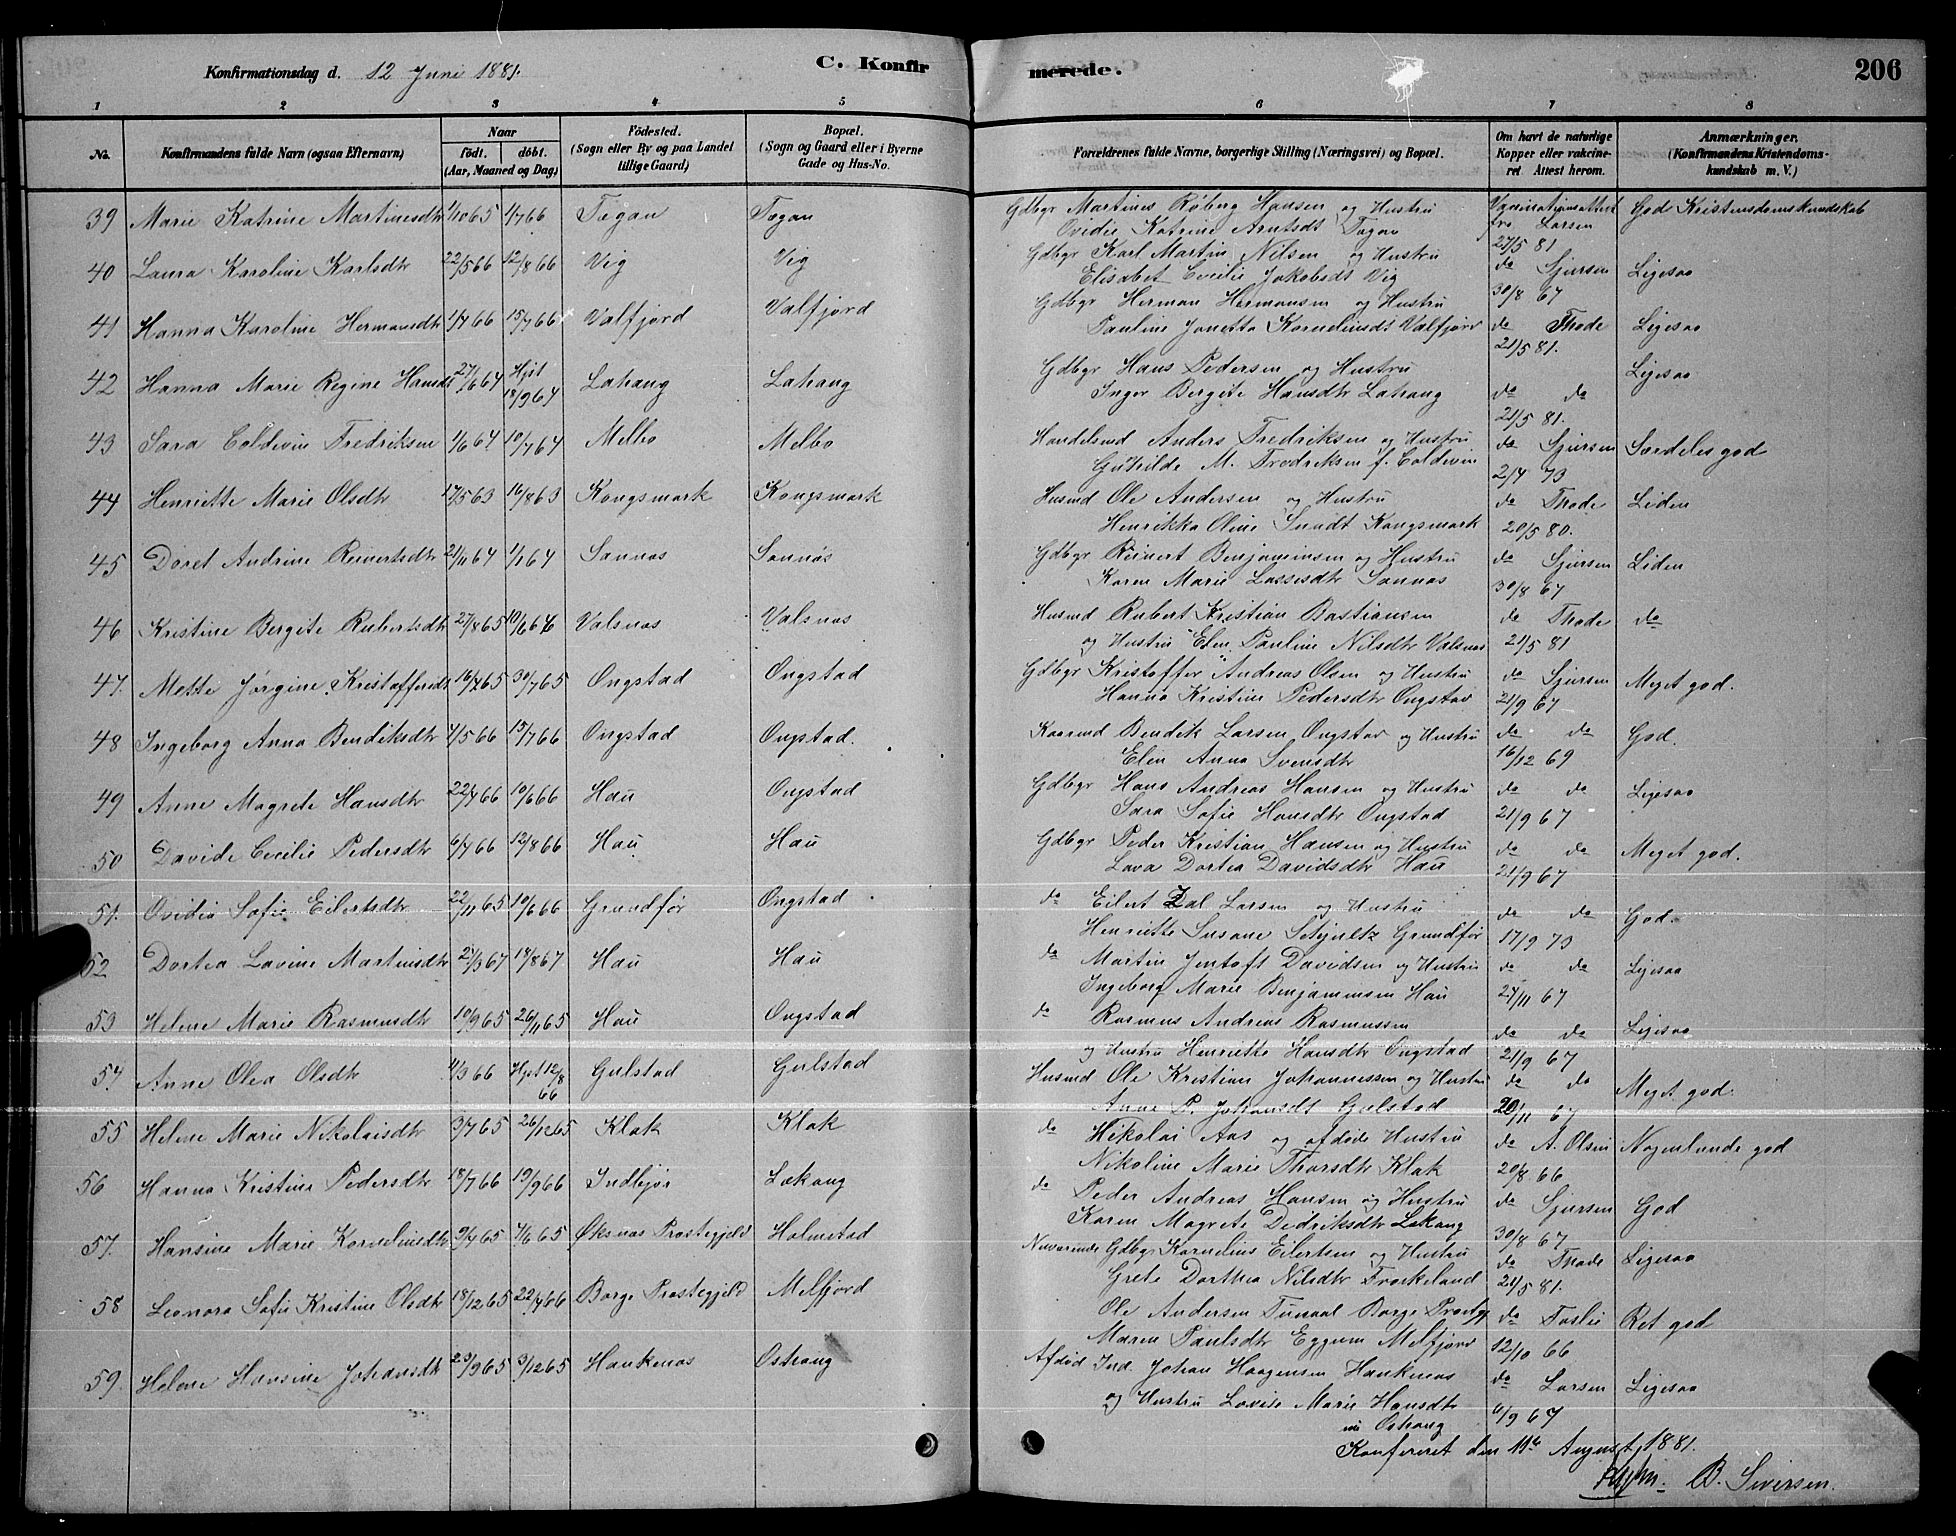 Konfirmationsdag d. 12 Juni 1881. C. Konfirmerede. 206
1 2 3 4 5 6 7 8
No. Konfirmandens fulde Navn (ogsaa Efternavn) Naar født. døbt. (Aar, Maaned og Dag) Fødested. (Sogn eller By og paa Landet tillige Gaard) Bopæl. (Sogn og Gaard eller i Byerne Gade og Hus-No. Forældrenes fulde Navne, borgerlige Stilling (Næringsvei) og Bopæl. Om havt de naturlige Kopper eller vakcineret. Attest herom. Anmærkninger. (Konfirmandens Kristendomskundskab m. V.)
39 Marie Katrine Martinsdtr 1/10 65 1/7 66 Tøgan Tøgan Gdbgr Martines Røberg Hansen og Hustru Vaccinationsattest God Kristendomskundskab
Ovidie Katrine Arntsdt Tøgan fra Larsen 27/5 81
40 Laura Karoline Karlsdtr 22/5 66 12/8 66 Vig Vig Gdbgr Karl Martin Nilsen og Hustru do Sjursen Ligesaa
Elisabet Cecilie Jakobsdt Vig 30/8 67
41 Hanna Karoline Hermansdtr 1/4 66 15/7 66 Valfjord Valfjord Gdbgr Herman Hermansen og Hustru do Thode Ligesaa
Pauline Jonetta Korneliusdt Valfjord 21/5 81.
42 Hanna Marie Regine Hansdt 27/6 64 Hjdt 18/9 64 Lahaug Lahaug Gdbgr Hans Pedersen og Hustru do do Ligesaa
Inger Bergite Hansdtr Lahaug 21/5 81.
43 Sara Coldevin Fredriksen 1/6 64 10/7 64 Melbo Melbo Handelsmd Anders Fredriksen og Hustru do Sjursen Særdeles god
M. Fredriksen f. Coldevin 2/4 73
44 Henriette Marie Olsdtr 17/5 63 16/8 63 Kongsmark Kongsmark Husmd Ole Andersen og Hustru do Thode Liden
Henrikka Oline Sundt Kongsmark 20/5 80.
45 Doret Andrine Reinertsdtr 21/11 64 1/1 64 Sannes Sannes Gdbgr Reinert Benjaminsen og Hustru do Sjursen Liden
Karen Marie Lassesdtr Sannes 30/8 67
46 Kristine Bergite Rubertsdtr 27/8 65 10/6 66 Valsnes Valsnes Husmd Rubert Kristian Bastiansen do Thode do
og Hustru Elen Pauline Nilsdtr Valsnes 21/5 81
47. Mette Jørgine Kristoffersdt 16/4 65 30/7 65 Ongstad Ongstad Gdbgr Kristoffer Andreas Olsen og Hustru do Sjursen Meget god.
Hanna Kristine Pedersdtr Ongstad 21/9 67
48 Ingeborg Anna Bendiksdtr 4/5 66 15/7 66 Ongstad Ongstad. Kaarmd Bendik Larsen Ongstad og Hustru do do God.
Elen Anna Svensdtr 16/12 69
49 Anne Magrete Hansdtr 22/4 66 10/6 66 Hau Ongstad Gdbgr Hans Andreas Hansen og Hustru do do Ligesaa
Sara Sofie Hansdtr Ongstad 21/9 67
50 Davide Cecilie Pedersdtr 6/4 66 12/8 66 Hau Hau Gdbgr Peder Kristian Hansen og Hustru do do Meget god.
Lava Dortea Davidsdtr Hau 21/9 67
51. Ovidia Sofie Eilertsdtr 22/11 65 10/6 66 Grundfør Ongstad do Eilert Zal Larsen og Hustru do do God
Henriette Susane Schjultz Grundfør 17/9 73
52 Dortea Lavine Martinsdtr 21/3 67 18/8 67 Hau Hau do Martin Jentoft Davidsen og Hustru do do Ligesaa
Ingeborg Marie Benjaminsen Hau 24/11 67
53 Helene Marie Rasmusdtr 10/9 65 26/11 65 Hau Ongstad do Rasmus Andreas Rasmussen do do Ligesaa
og Hustru Henriette Hansdtr Ongstad 21/9 67
54 Anne Olea Olsdtr 4/3 66 Hjdt 12/8 66 Gulstad Gulstad Husmd Ole Kristian Johannessen og Hustru do do Meget god.
Anne P. Johansdt Gulstad 20/11 67
55 Helene Marie Nikolaisdtr 3/7 65 26/12 65 Klak Klak do Nikolai Aas og afdøde Hustru do A. Olsen Nogenlunde god
Nikoline Marie Thorsdtr Klak 20/8 66
56 Hanna Kristine Pedersdtr 18/7 66 19/9 66 Indbjør Løkang do Peder Andreas Hansen og Hustru do Sjursen God
Karen Magrete Didriksdtr Løkang 30/8 67
57. Hansine Marie Korneliusdtr 9/4 65 4/6 65 Øksnes Præstegjeld Holmstad Nuværende Gdbgr Kornelius Eilertsen og Hustru do Thode Ligesaa
Grete Dorthea Nilsdtr Frøskeland 21/5 81.
58 Leonora Sofie Kristine Olsdtr 18/12 65 22/4 66 Borge Præstegjeld Melfjord Ole Andersen Borge Præstgj do Foslie Ret god
Maren Paulsdtr Eggum Melfjord 12/10 66
59. Helene Hansine Johansdtr 23/9 65 3/12 65 Hanknes Oshaug Afdød Ind. Johan Haagensen Hanknes do Larsen Ligesaa
og Hustru Lovise Marie Hansdtr 6/9 67
nu Oshaug
Konfereret den 11te August 1881.
B. Siversen.